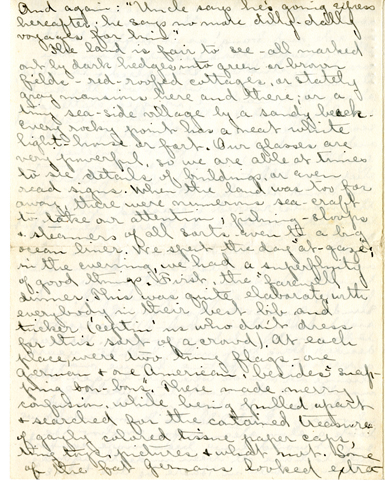 And again: "Uncle says he's going express
hereafter; he says no more dilly-dally
voyages for him."
The land is fair to see - all marked
out by dark hedges into green or brown
fields - red-roofed cottages, or stately
gray mansions here and there; or a
tiny sea-side village by a sandy beach.
Every rocky point has a neat white
light-house or fort. Our glasses are
very powerful, so we are able at times
to see details of buildings, or even
read signs. When the land was too far
away, there were numerous sea-craft
to take our attention; fishing-sloops
& steamers of all sorts even to a big
ocean liner. We spent the day "at gaze";
in the evening, we had a superfluity
of good things. First, the "farewell
dinner. This was quite elaborate, with
everybody in their best bib and
tucker (ceptin' us who don't dress
for this sort of a crowd). At each
place, were two tiny flags - one
German & one American, besides "snap-
ping bon-bons". These made merry
confusion, while being pulled apart
& searched for the contained treasures
of gayly colored tissue paper caps,
tiny pictures & what not. Some
of the fat Germans looked extra